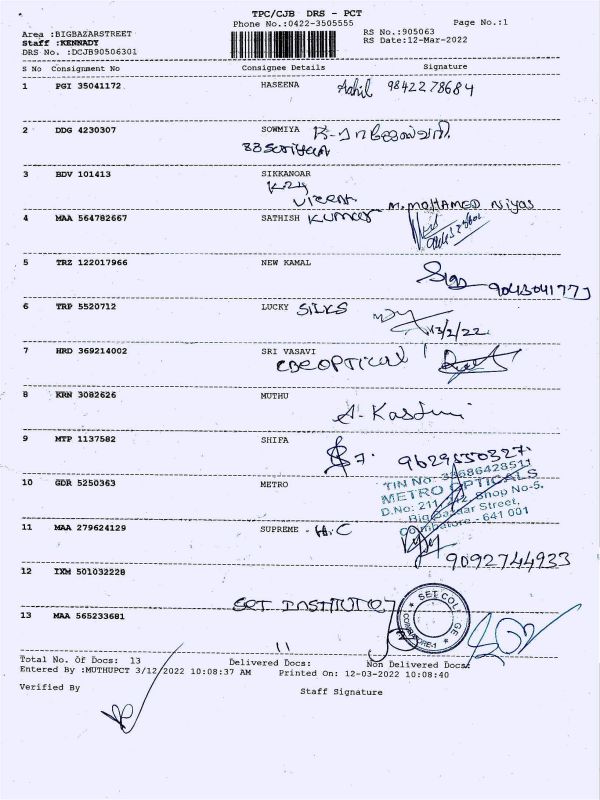 TPC/CJB DRS - PCT
Phone No.:0422-3505555 Page No.:1
Area :BIGBAZARSTREET RS No.:905063
Staff :KENNADY RS Date:12-Mar-2022
DRS No. :DCJB90506301
S No Consignment No Consignee Details Signature
1 PGI 35041172 HASEENA Aahil 9842278684
2 DDG 4230307 SOWMIYA
3 BDV 101413 SIKKANOAR
M.MOHAMED Niyas
4 MAA 564782667 SATHISH Kumar
5 TRZ 122017966 NEW KAMAL
6 TRP 5520712 LUCKY SILKS
13/2/22
7 HRD 369214002 SRI VASAVI
OPTICAL
8 KRN 3082626 MUTHU
A. Kasturi
9 MTP 1137582 SHIFA
9629550327
10 GDR 5250363 METRO
TIN No: 33686428511
METRO OPTICALS
D.No: 211, Shop No-5,
Big Bazaar Street,
Coimbatore - 641 001
11 MAA 279624129 SUPREME - H.C
9092744933
12 IXM 501032228
SET INSTITUTE
SET COLLEGE
COIMBATORE-1
13 MAA 565233681
Total No. Of Docs: 13 Delivered Docs: 11 Non Delivered Docs:
Entered By :MUTHUPCT 3/12/2022 10:08:37 AM Printed On: 12-03-2022 10:08:40
Verified By Staff Signature